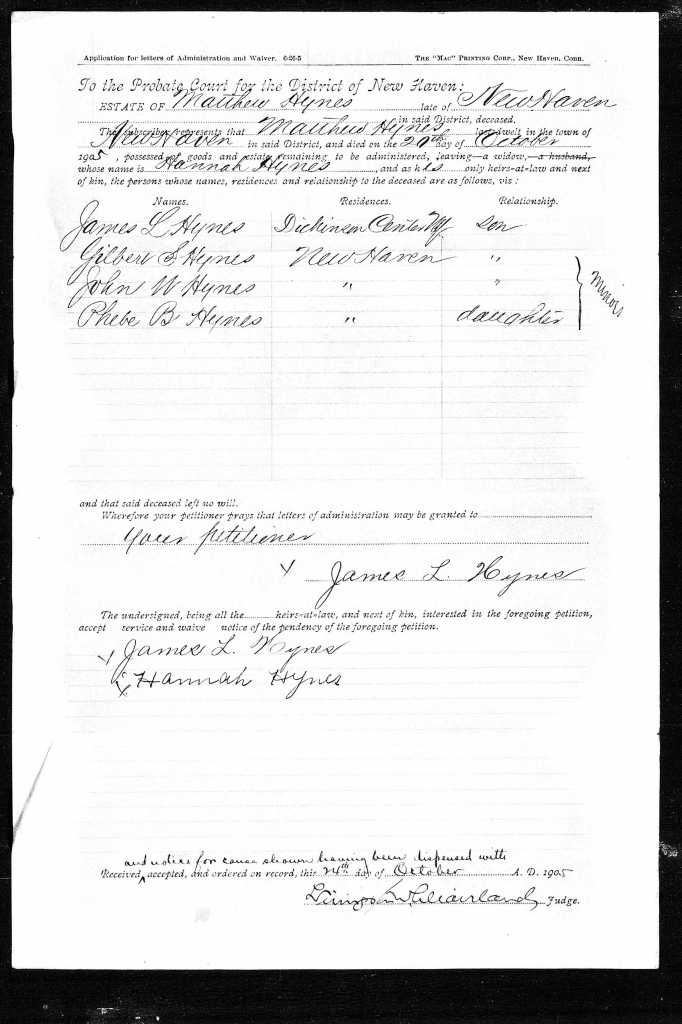 Application for letters of Administration and Waiver. 6-26-5 THE "MAC" PRINTING CORP., New Haven, Conn.
To the Probate Court for the District of New Haven:
ESTATE OF Matthew Hynes late of New Haven
in said District, deceased.
The subscriber represents that Matthew Hynes last dwelt in the town of
New Haven in said District, and died on the 20th day of October
1905, possessed of goods and estate remaining to be administered, leaving—a widow,—a husband,
whose name is Hannah Hynes, and as his only heirs-at-law and next
of kin, the persons whose names, residences and relationship to the deceased are as follows, vis:
Names. Residences. Relationship.
James L Hynes Dickinson Center NY son
Gilbert S Hynes New Haven "
John W Hynes " "
Phebe B Hynes " daughter
Minors
and that said deceased left no will.
Wherefore your petitioner prays that letters of administration may be granted to
your petitioner
James L. Hynes
The undersigned, being all the heirs-at-law, and next of kin, interested in the foregoing petition,
accept service and waive notice of the pendency of the foregoing petition.
James L. Hynes
Hannah Hynes
and notice for cause shown having been dispensed with
Received, accepted, and ordered on record, this 24th day of October A. D. 1905
Judge.